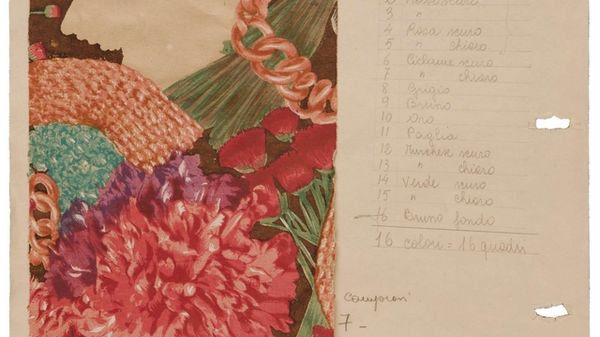 3 "
4 Rosa scuro
5 " chiaro
6 Ciclame scuro
7 " chiaro
8 Grigio
9 Bruno
10 Oro
11 Paglia
12 Turchese scuro
13 " chiaro
14 Verde scuro
15 " chiaro
16 Bruno fondo
16 colori = 16 quadri
7 -